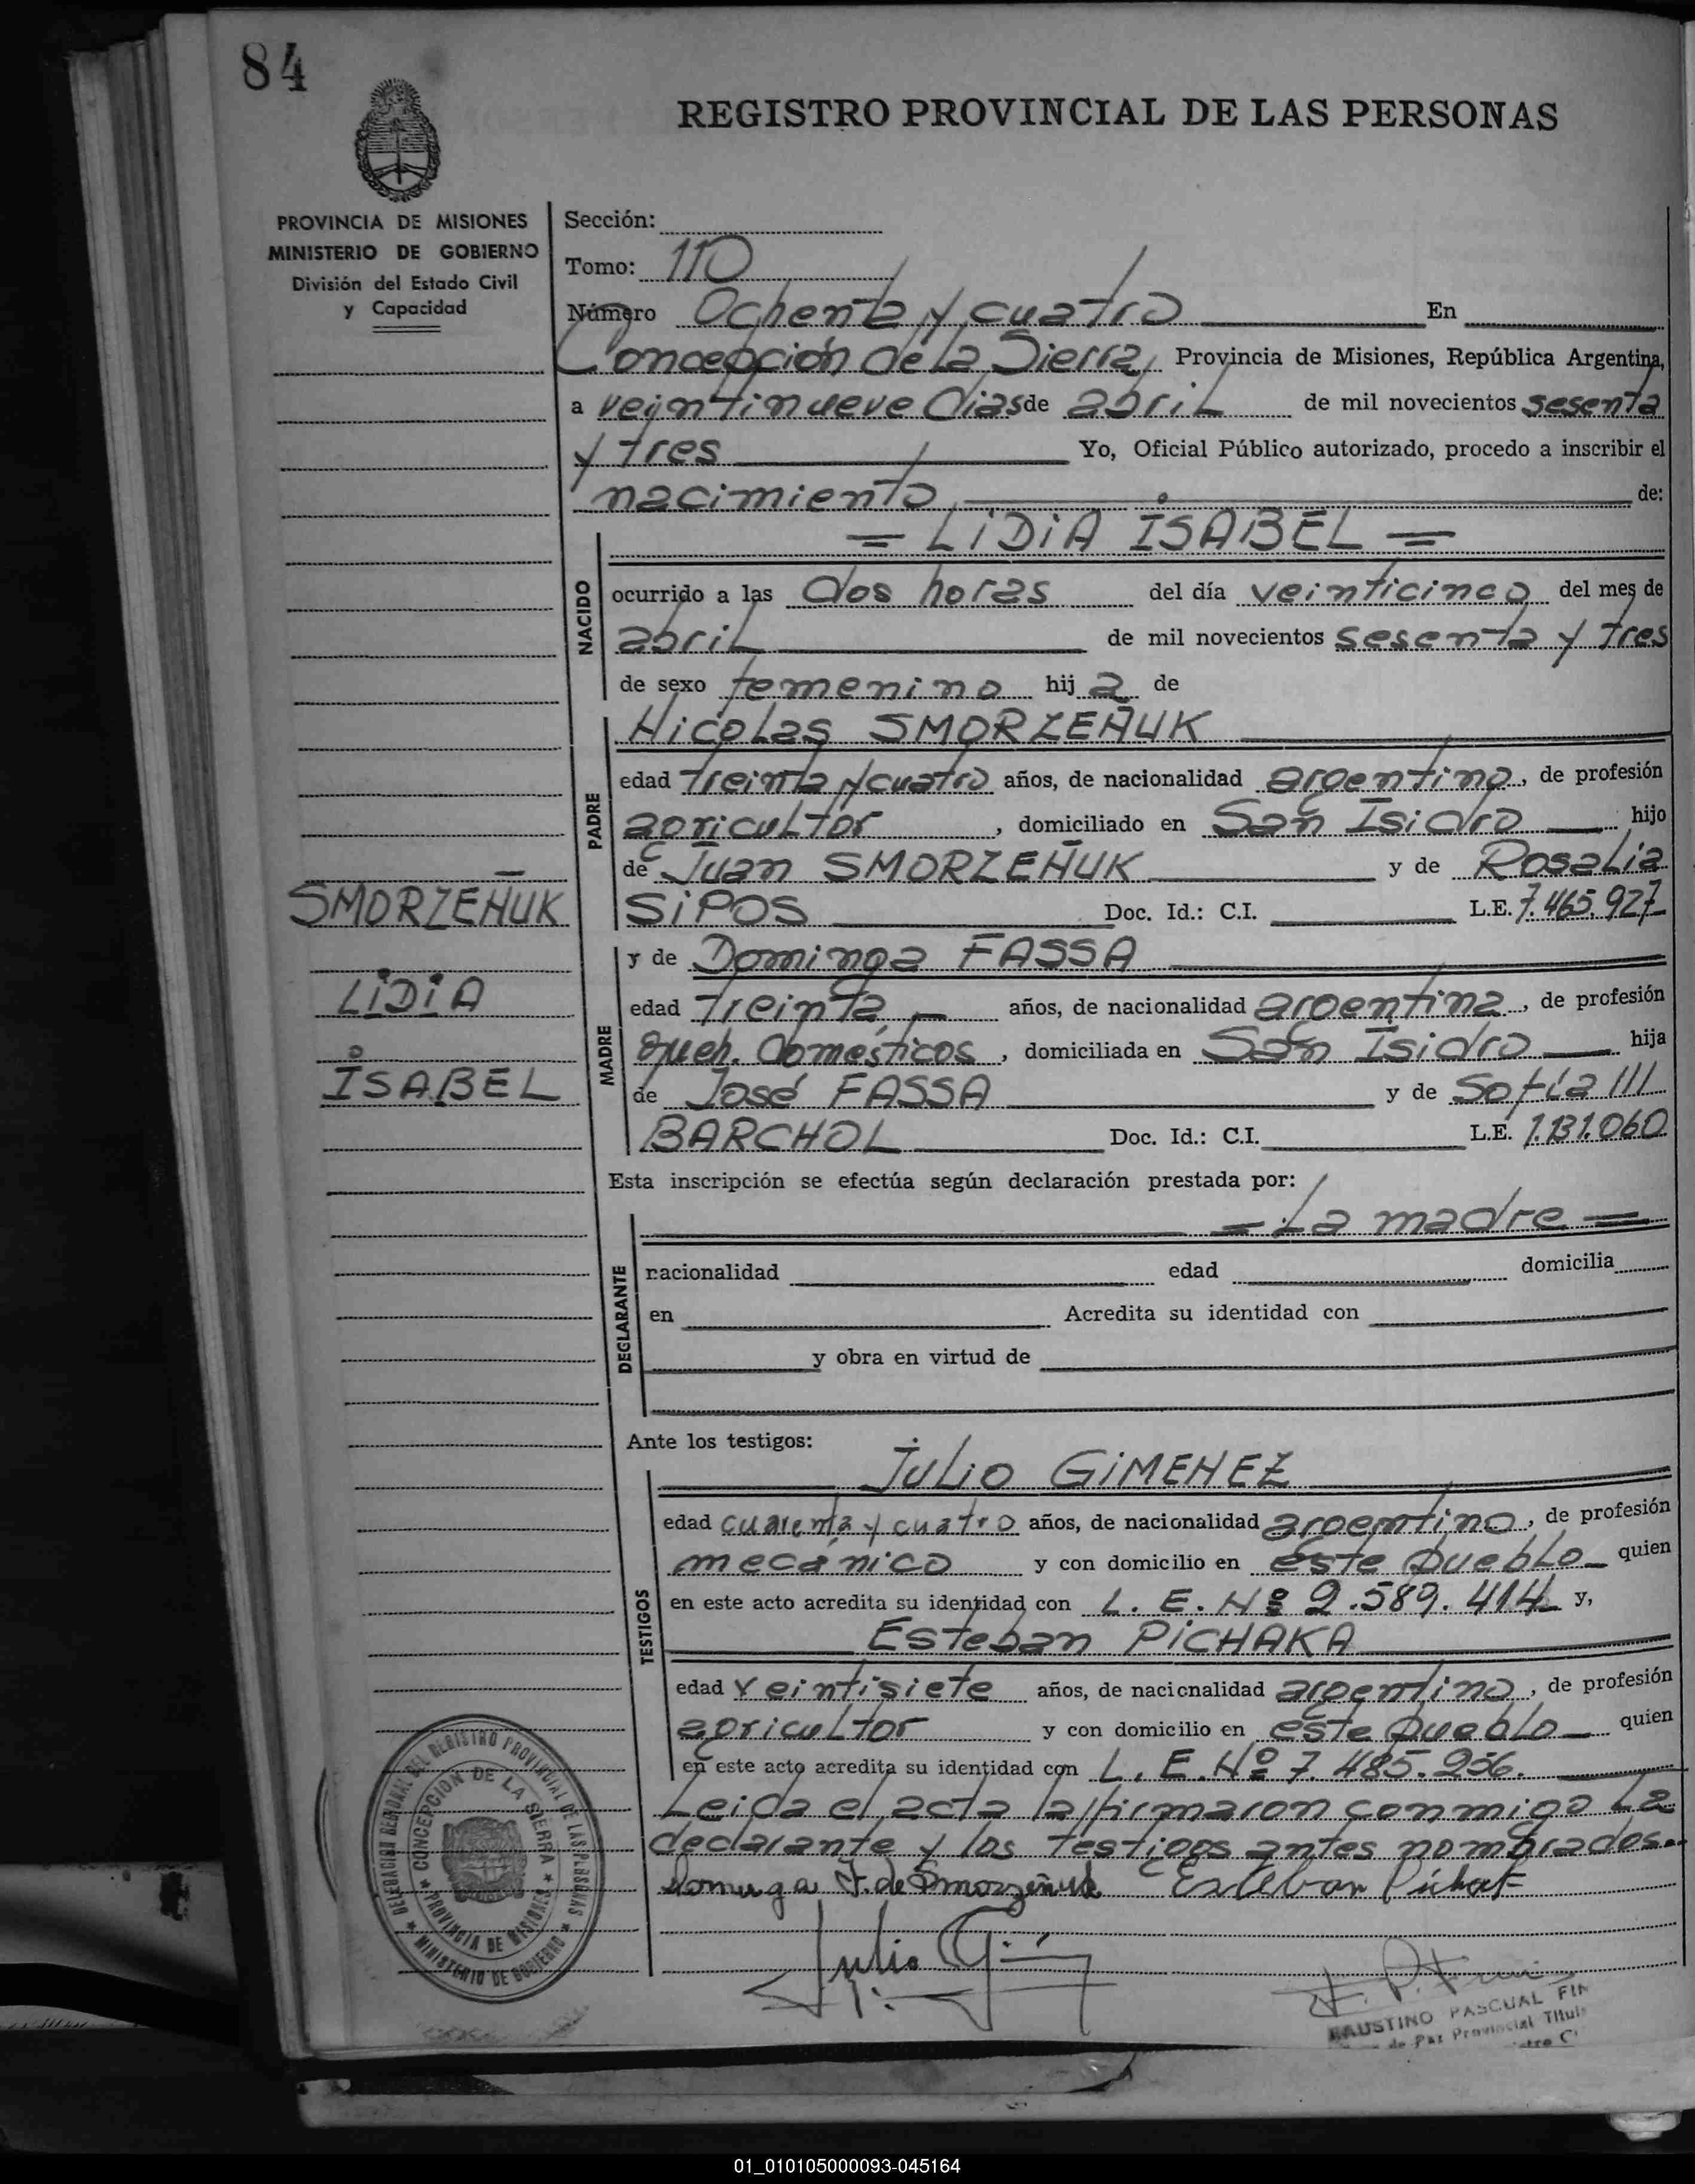 84
REGISTRO PROVINCIAL DE LAS PERSONAS
PROVINCIA DE MISIONES
MINISTERIO DE GOBIERNO
División del Estado Civil
y Capacidad
Sección:
Tomo: 110
Número Ochenta y cuatro En
Concepción de la Sierra, Provincia de Misiones, República Argentina,
a veintinueve dias de abril de mil novecientos sesenta
y tres Yo, Oficial Público autorizado, procedo a inscribir el
nacimiento de:
= LIDIA ISABEL =
NACIDO
ocurrido a las dos horas del día veinticinco del mes de
abril de mil novecientos sesenta y tres
de sexo femenino hij a de
PADRE
Nicolas SMORZEÑUK
edad treinta y cuatro años, de nacionalidad argentino, de profesión
agricultor, domiciliado en San Isidro hijo
de Juan SMORZEÑUK y de Rosalia
SIPOS Doc. Id.: C.I. L.E. 7.465.927
SMORZEÑUK
LIDIA
ISABEL
MADRE
y de Dominga FASSA
edad treinta años, de nacionalidad argentina, de profesión
queh. domésticos, domiciliada en San Isidro hija
de José FASSA y de Sofía
BARCHOL Doc. Id.: C.I. L.E. 1.131.060
Esta inscripción se efectúa según declaración prestada por:
= La madre =
DECLARANTE
nacionalidad edad domicilia
en Acredita su identidad con
y obra en virtud de
Ante los testigos:
TESTIGOS
Julio GIMENEZ
edad cuarenta y cuatro años, de nacionalidad argentino, de profesión
mecánico y con domicilio en este pueblo quien
en este acto acredita su identidad con L. E. Nº 2.589.414 y,
Esteban PICHAKA
edad veintisiete años, de nacionalidad argentino, de profesión
agricultor y con domicilio en este pueblo quien
en este acto acredita su identidad con L. E. Nº 7.485.256.
Leida el acta la firmaron conmigo la
declarante y los testigos antes nombrados.
Dominga F. de Smorzeñuk Esteban
Julio
DELEGACION REGIONAL DEL REGISTRO PROVINCIAL DE LAS PERSONAS
CONCEPCION DE LA SIERRA
PROVINCIA DE MISIONES
MINISTERIO DE GOBIERNO
FAUSTINO PASCUAL
de Paz Provincial
01_010105000093-045164